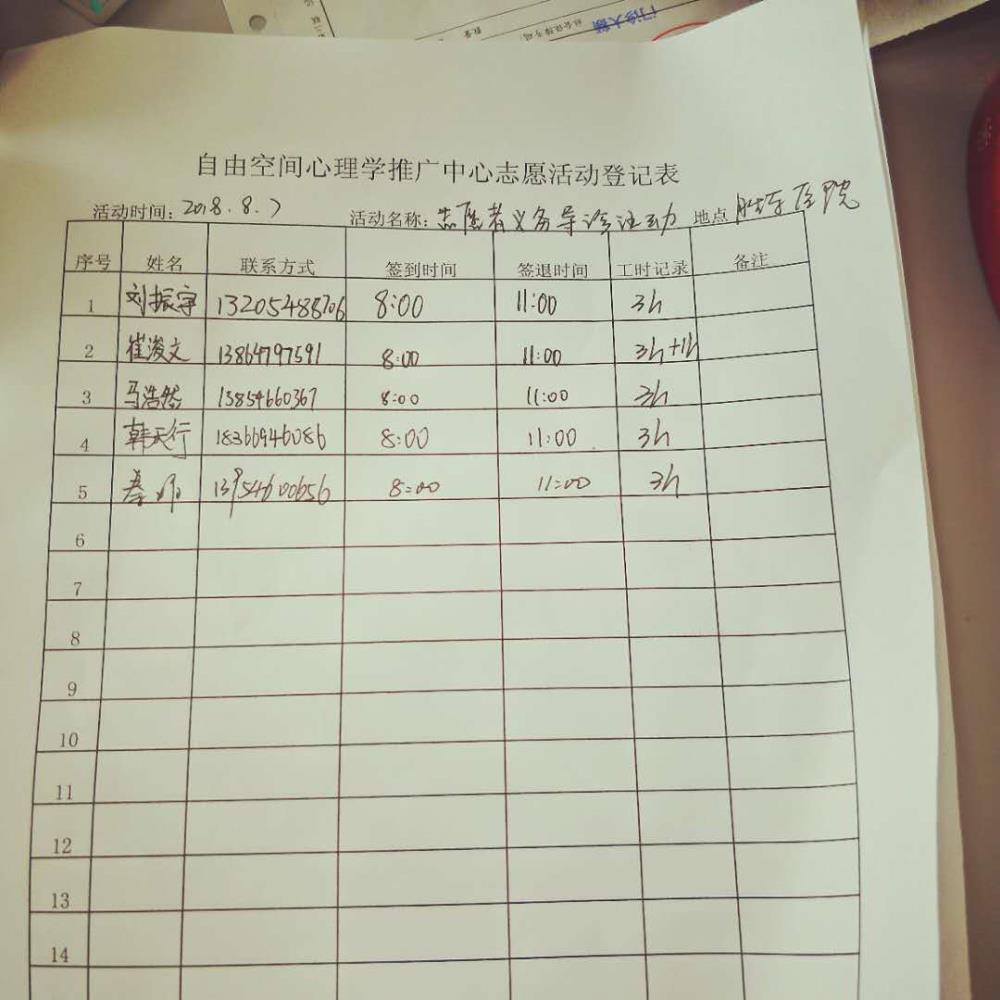 门诊大额
自由空间心理学推广中心志愿活动登记表
活动时间：2018.8.7 活动名称：志愿者义务导诊活动 地点 医院
序号 姓名 联系方式 签到时间 签退时间 工时记录 备注
1 刘振宇 13205488706 8:00 11:00 3h
2 崔浚文 13864797591 8:00 11:00 3h+1h
3 马浩然 15854660367 8:00 11:00 3h
4 韩天行 18366946086 8:00 11:00 3h
5 8:00 11:00 3h
6
7
8
9
10
11
12
13
14